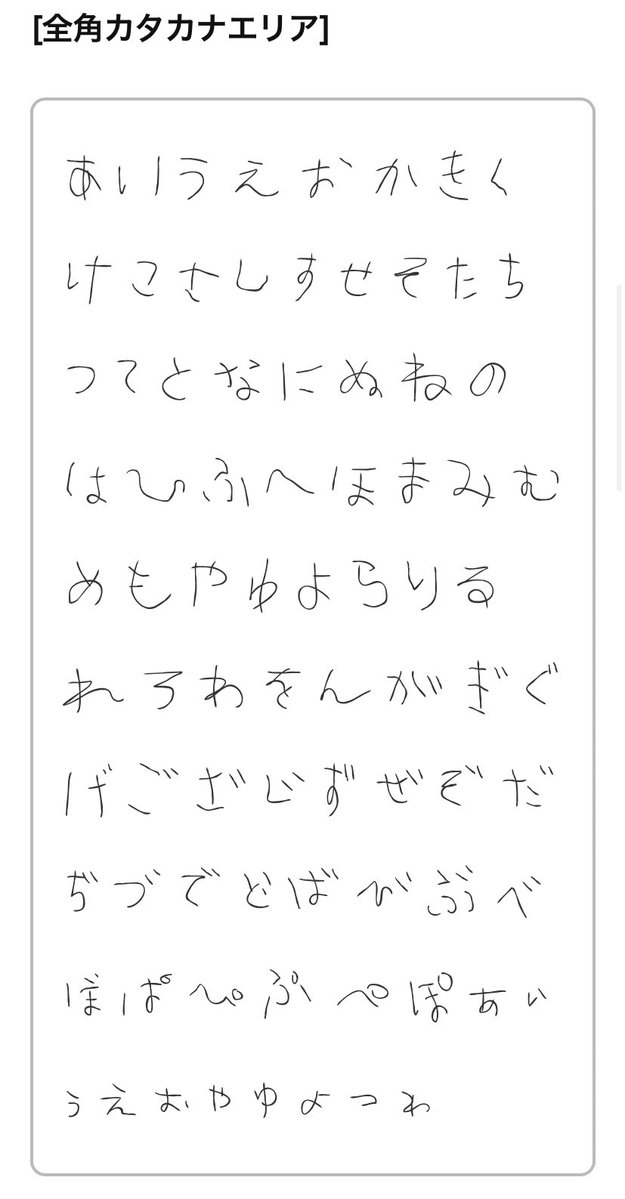 [全角カタカナエリア]
あいうえおかきく
けこさしすせそたち
つてとなにぬねの
はひふへほまみむ
めもやゆよらりる
れろわをんがぎぐ
げござじずぜぞだ
ぢづでどばびぶべ
ぼぱぴぷぺぽぁぃ
ぅぇぉゃゅょっゎ